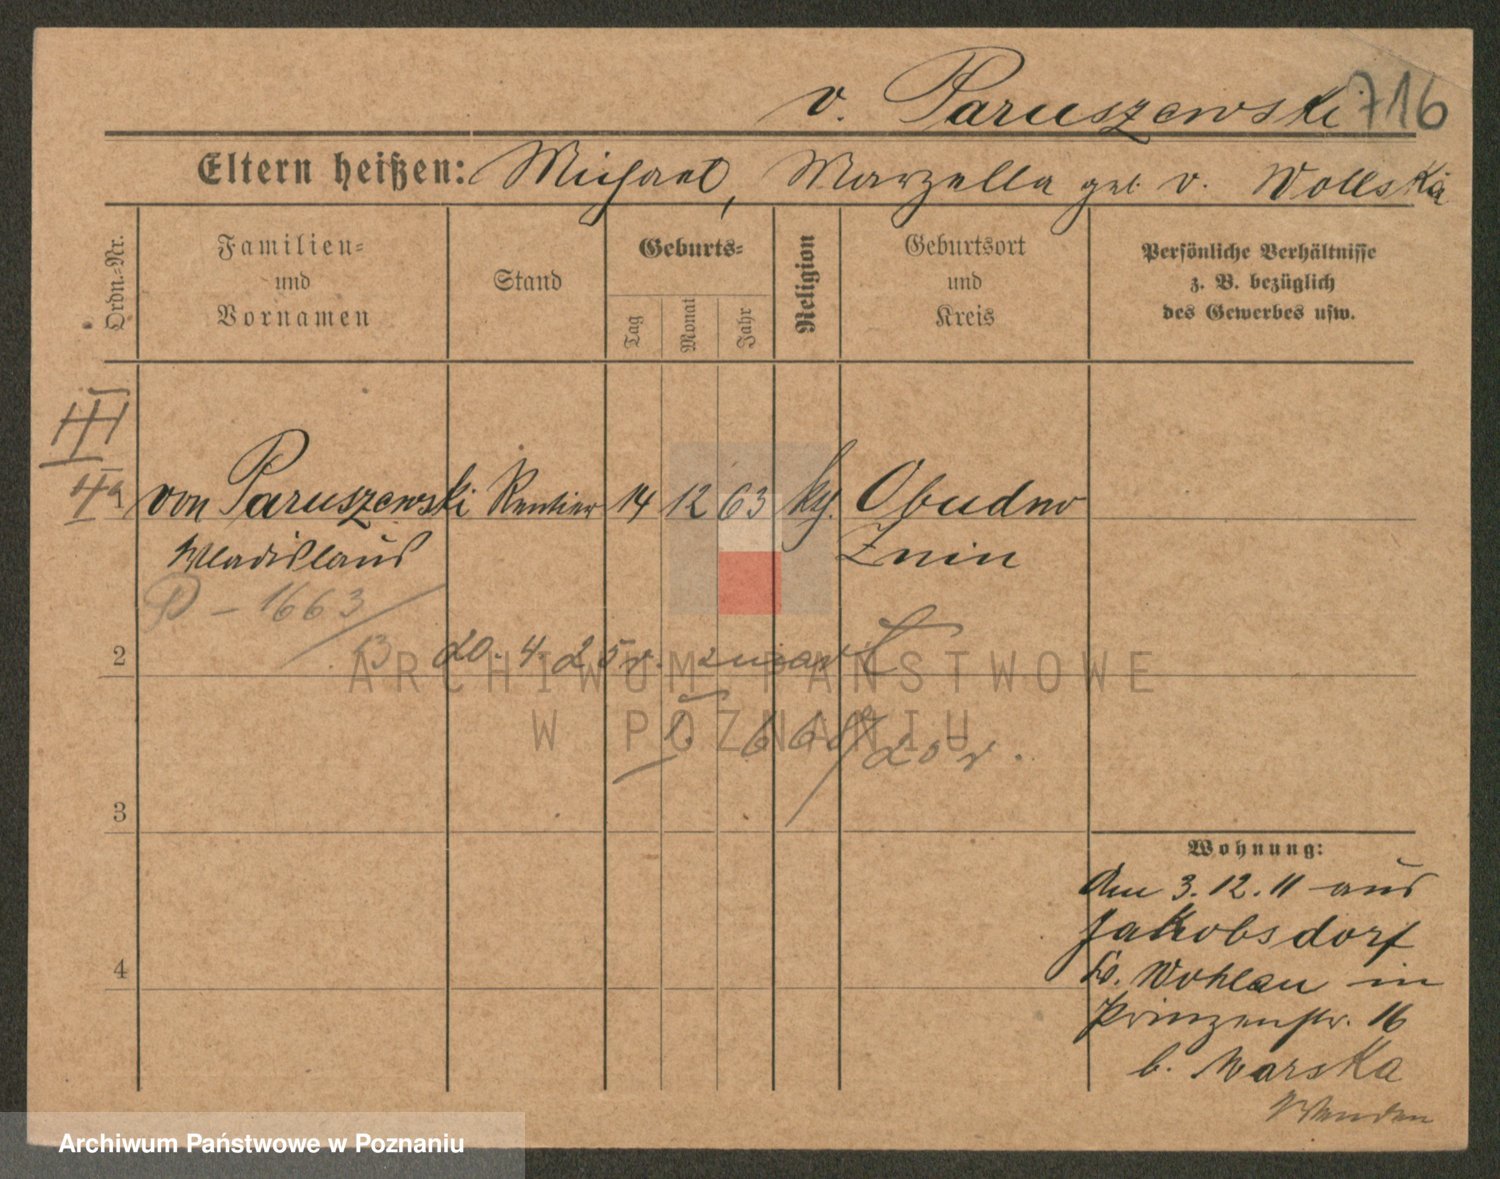 v. Paruszewski 716
Eltern heißen: Michael, Marzella geb. v. Wollska
Ordn.-Nr.
Familien-
und
Vornamen
Stand
Geburts-
Tag
Monat
Jahr
Religion
Geburtsort
und
Kreis
Persönliche Verhältnisse
z. B. bezüglich
des Gewerbes usw.
III
1 von Paruszewski Rentier 14 12 63 kth. Obudno
Wladislaus Znin
D - 1663/13
2 20.4.25 r. zmarł
I. 668/25 r.
ARCHIWUM PAŃSTWOWE
W POZNANIU
3
Wohnung:
Am 3.12.11 aus
Jakobsdorf
Kr. Wohlau in
4
Prinzenstr. 16
b. Warska
Wenden
Archiwum Państwowe w Poznaniu